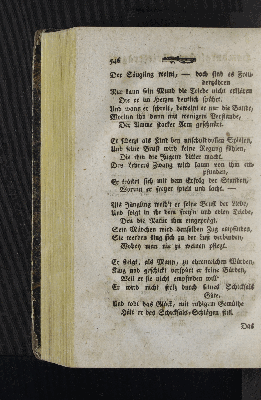 546
Der Säugling weint, — doch sind es Freu-
denzähren
Nur kann sein Mund die Triebe nicht erklären
Die er im Herzen deutlich spührt.
Und wann er schreit, beweint er nur die Bande,
Worinn ihn dann mit wenigem Verstande,
Der Amme starker Arm geschnürt.
Er scherzt als Kind bey unschuldsvollen Spielen,
Und seine Brust wird keine Regung fühlen,
Die ihm die Jugend bitter macht.
Des Lehrers Zwang wird kaum von ihm em-
pfunden,
Er tröstet sich mit dem Erfolg der Stunden,
Worinn er scherzt spielt und lacht. —
Als Jüngling weih't er seine Brust der Liebe,
Und folgt in ihr dem sanften und edlen Triebe,
Den die Natur ihm eingeprägt.
Sein Mädchen wird denselben Zug empfinden,
Sie werden klug sich zu der Lust verbinden,
Wobey man nie zu weinen pflegt.
Er steigt, als Mann, zu ehrenreichen Würden,
Klug und geschickt verspürt er keine Bürden,
Weil er sie nicht empfinden will
Er wird nicht stolz durch seines Schicksals
Güte,
Und lobt das Glück, mit ruhigem Gemüthe
Hält er des Schicksals-Schlägen still.
Das